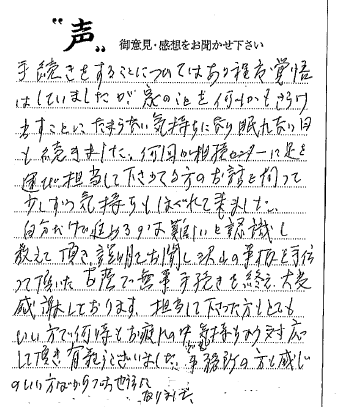 "声"
御意見・感想をお聞かせ下さい
手続きをすることについてはある程度覚悟
はしていましたが家のことを何もかもさらけ
出すことにたまらない気持ちになり眠れない日
も続きました。何回か相談センターに足を
運び担当して下さってる方のお話を伺って
少しずつ気持ちもほぐれて来ました。
自分だけで進めるのは難しいと認識し
教えて頂き説明してお聞し沢山の事柄を手伝
って頂いたお陰で無事手続きを終え、大変
感謝しております。担当して下さった方もとても
いい方で何時もお疲れの中気持ちよく対応
して頂き有難うございました。事務所の方も感じ
のいい方ばかりで
なりました。